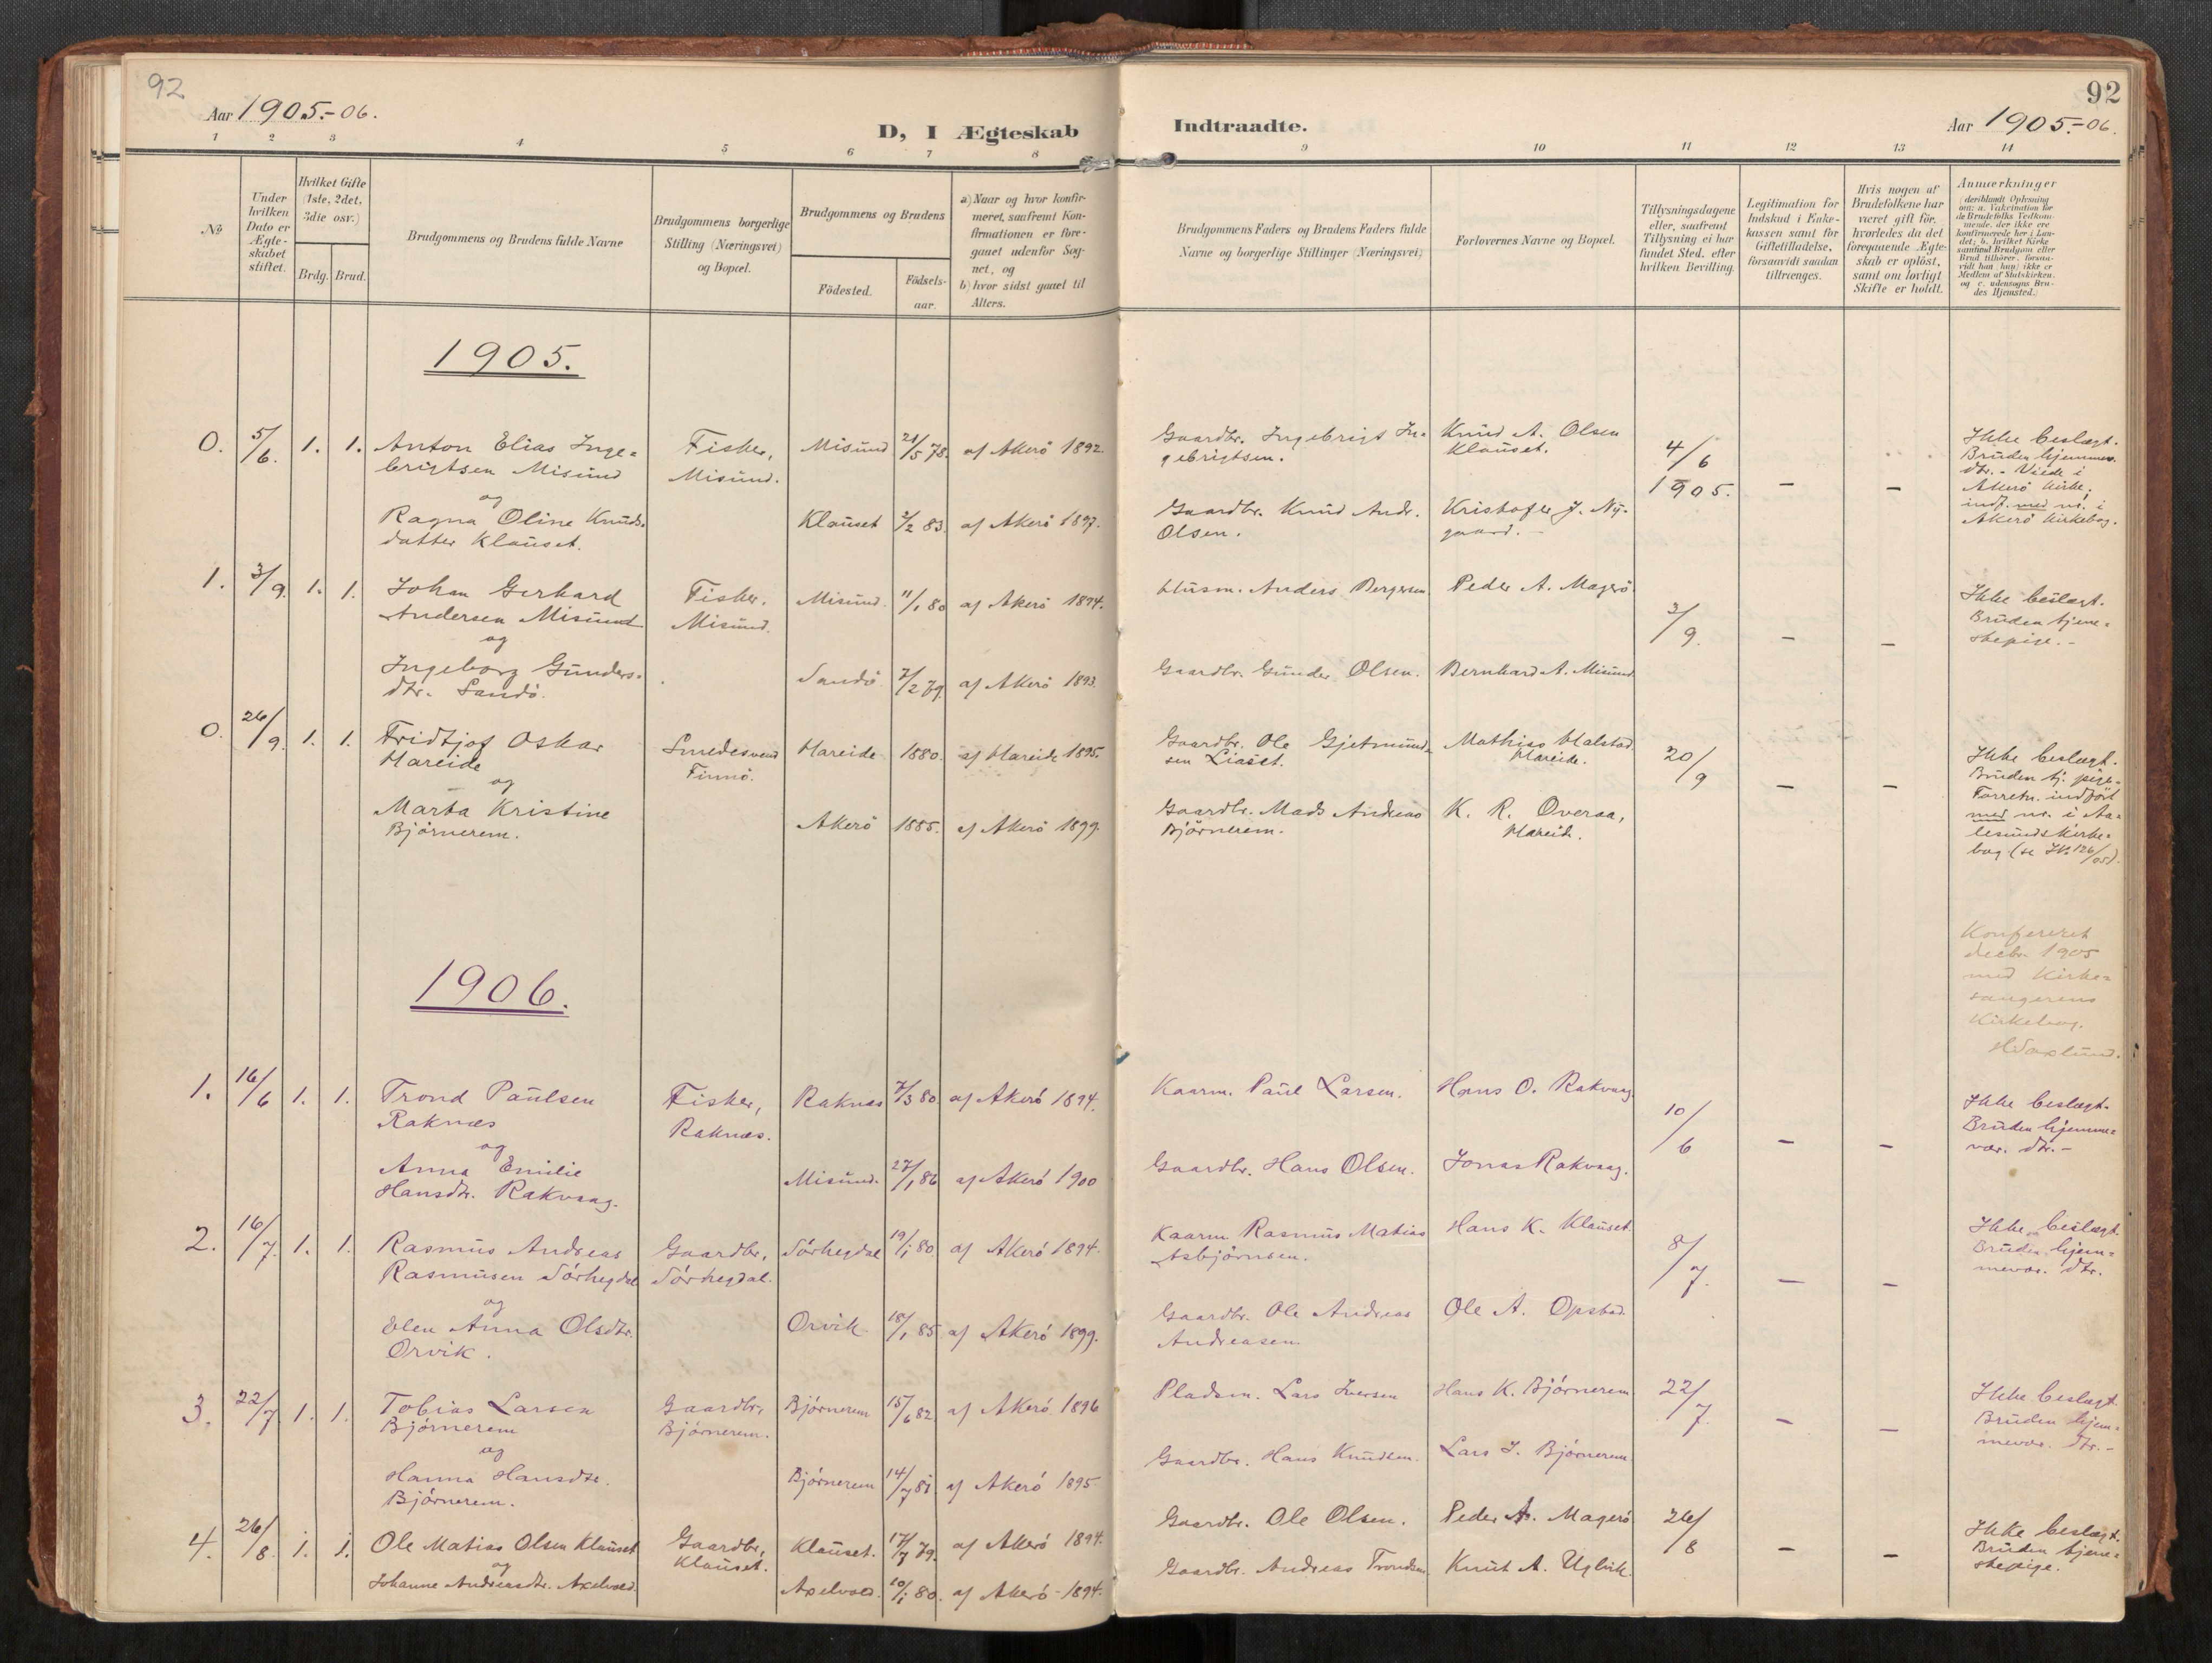 92
92
Aar 1905.-06.
D, I Ægteskab
Indtraadte.
Aar 1905.-06.
1 2 3 4 5 6 7 8 9 10 11 12 13 14
No
Under hvilken Dato er Ægteskabet stiftet.
Hvilket Gifte (1ste, 2det, 3die osv.)
Brdg. Brud.
Brudgommens og Brudens fulde Navne
Brudgommens borgerlige Stilling (Næringsvei) og Bopæl.
Brudgommens og Brudens
Födested.
Födselsaar.
a) Naar og hvor konfirmeret, saafremt Konfirmationen er foregaaet udenfor Sognet, og
b) hvor sidst gaaet til Alters.
Brudgommens Faders og Brudens Faders fulde Navne og borgerlige Stillinger (Næringsvei)
Forlovernes Navne og Bopæl.
Tillysningsdagene eller, saafremt Tillysning ei har fundet Sted, efter hvilken Bevilling.
Legitimation for Indskud i Enkekassen samt for Giftetilladelse, forsaavidt saadan tiltrænges.
Hvis nogen af Brudefolkene har været gift för, hvorledes da det foregaaende Ægteskab er oplöst, samt om lovligt Skifte er holdt.
Anmærkninger (deriblandt Oplysning om: a. Vakcination for de Brudefolks Vedkommende, der ikke ere konfirmerede her i Landet; b. hvilket Kirkesamfund Brudgom eller Brud tilhörer, forsaavidt han (hun) ikke er Medlem af Statskirken, og c. udensogns Brudes Hjemsted.)
1905.
0. 5/6. 1. 1. Anton Elias Inge= Fisker, Misund 21/5 78. af Akerö 1892. Gaardbr. Ingebrigt In= Knud A. Olsen 4/6 Ikke beslægt.
brigtsen Misund Misund. gebrigtsen. Klauset. 1905. - - Bruden hjemmev.
og dtr. - Viede i
Akerö kirke;
Ragna Oline Knuds= Klauset 2/2 83. af Akerö 1897. Gaardbr. Knud Andr. Kristofer J. Ny= indf. med nr. i
datter Klauset. Olsen. gaard. - Akerö kirkebog.
1. 3/9. 1. 1. Johan Gerhard Fisker. Misund. 11/1 80 af Akerö 1894. Husm. Anders Bergersen Peder A. Magerö 3/9. - - Ikke beslægt.
Andersen Misund Misund. Bruden tjene=
og stepige. -
Ingeborg Gunders= Sandö 7/2 79. af Akerö 1893. Gaardbr. Gunder Olsen. Bernhard A. Misund
dtr. Sandö.
0. 26/9. 1. 1. Fridtjof Oskar Smedesvend Hareide 1880. af Hareide 1895. Gaardbr. Ole Gjetmund= Mathias Halstad 20/9 - - Ikke beslægt.
Hareide Finnö. sen Liaset. Hareide. Bruden tj. pige.
og Forretn. indfört
Marta Kristine Akerö 1885. af Akerö 1899. Gaardbr. Mads Andreas K. R. Overaa, med nr. i Aa=
Björnerem. Björnerem. Hareid. lesunds kirke=
bog (se JK. 126/05).
Konfereret
decbr. 1905
med Kirke=
sangerens
Kirkebog.
1906.
1. 16/6 1. 1. Trond Paulsen Fisker, Raknæs 7/3 80 af Akerö 1894. Kaarm. Paul Larsen. Hans O. Rakvaag 10/6 - - Ikke beslægt.
Raknæs Raknæs. Bruden hjemme=
og vær. dtr. -
Anna Emilie Misund. 27/1 86 af Akerö 1900 Gaardbr. Hans Olsen. Jonas Rakvaag.
Hansdtr. Rakvaag.
2. 16/7. 1. 1. Rasmus Andreas Gaardbr, Sörhegdal 19/1 80 af Akerö 1894. Kaarm Rasmus Matias Hans K. Klauset 8/7. - - Ikke beslægt.
Rasmusen Sörhegdal Sörhegdal. Asbjörnsen. Bruden hjem=
og mevær. dtr.
Elen Anna Olsdtr. Orvik 18/1 85 af Akerö 1899. Gaardbr. Ole Andreas Ole A. Opstad.
Orvik. Andreasen.
3. 22/7 1. 1. Tobias Larsen Gaardbr, Björnerem 15/6 82 af Akerö 1896 Pladsm. Lars Iversen Hans K. Björnerem 22/7. - - Ikke beslægt.
Björnerem Björnerem. Bruden hjem=
og mevær. dtr. -
Hanna Hansdtr. Björnerem 14/7 81 af Akerö 1895. Gaardbr. Hans Knudsen. Lars I. Björnerem
Björnerem.
4. 26/8. 1. 1. Ole Matias Olsen Klauset Gaardbr, Klauset. 17/7 79. af Akerö 1894. Gaardbr. Ole Olsen. Peder A. Magerö 26/8 - - Ikke beslægt.
og Klauset. Bruden tjene=
Johanne Andreasdtr. Axelvold. Axelvold. 10/1 80. af Akerö - 1894. Gaardbr. Andreas Trondsen Knut A. Uglvik. stepige.